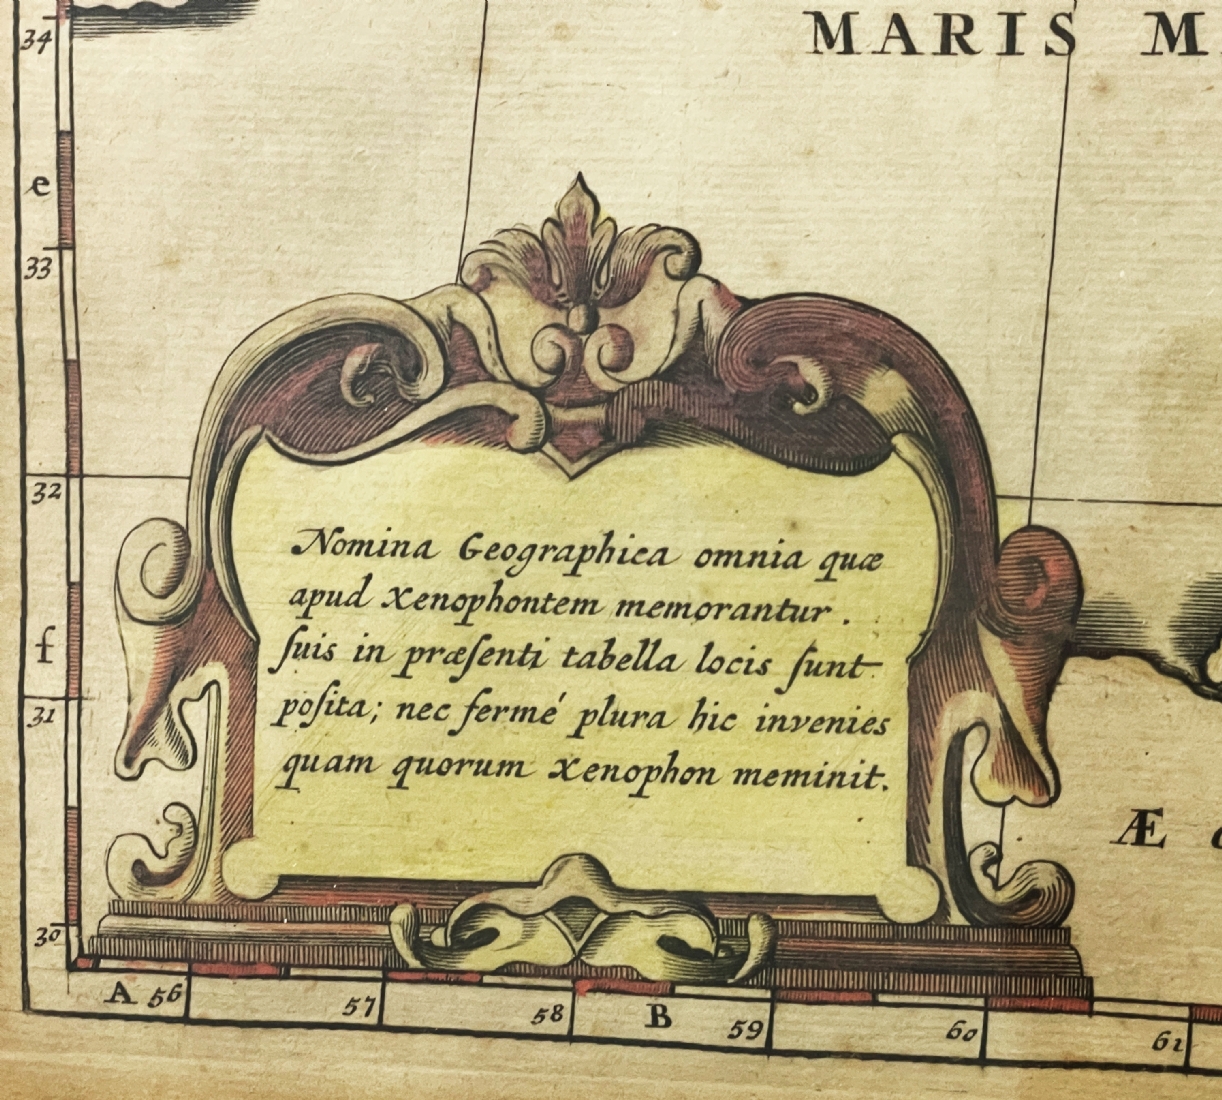 34
MARIS M
e
33
32
Nomina Geographica omnia quæ
apud Xenophontem memorantur.
ſuis in præſenti tabella locis ſunt
poſita; nec fermé plura hic invenies
quam quorum Xenophon meminit.
f
31
Æ
30
A 56 57 58 B 59 60 61